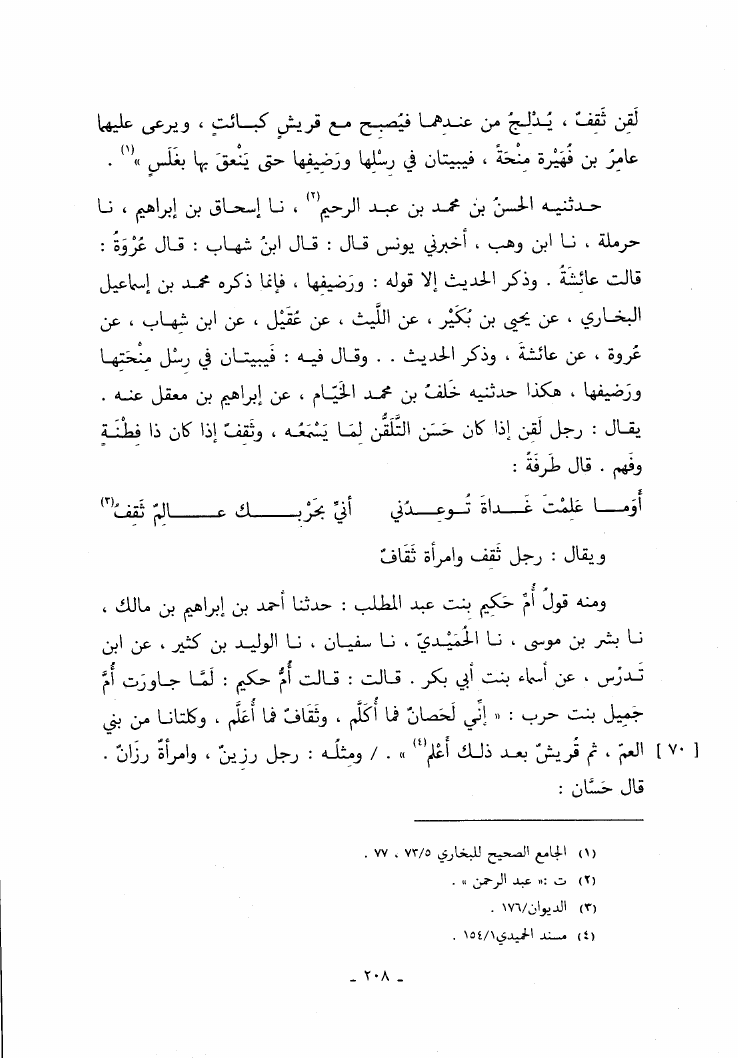 لَقِن ثَقِفٌ ، يُدْلِجُ من عندهما فيُصبح مع قريشٍ كبائتٍ ، ويرعى عليها
عامِرُ بن فُهَيْرة مِنْحَةً ، فيبيتان في رِسْلِها ورَضيفِها حتى يَنْعِقَ بها بغَلَسٍ »(١) .
حدثنيه الحسنُ بن محمد بن عبد الرحيم(٢) ، نا إسحاق بن إبراهيم ، نا
حرملة ، نا ابن وهب ، أخبرني يونس قال : قال ابنُ شهاب : قال عُرْوَةُ :
قالت عائشَةُ . وذكر الحديث إلا قوله : ورَضيفها ، فإنما ذكره محمد بن إسماعيل
البخاري ، عن يحيى بن بُكَيْر ، عن اللَّيث ، عن عُقَيْل ، عن ابن شهاب ، عن
عُروة ، عن عائشةَ ، وذكر الحديث . . وقال فيه : فَيبيتان في رِسْل مِنْحَتِها
ورَضيفها ، هكذا حدثنيه خَلَفُ بن محمد الخَيّام ، عن إبراهيم بن معقل عنه .
يقال : رجل لَقِن إذا كان حَسَن التَّلَقُّن لِمَا يَسْمَعُه ، وثَقِفٌ إذا كان ذا فِطْنَةٍ
وفهم . قال طَرفَةُ :
أَوَما عَلِمْتَ غَداةَ تُوعِدُني أنيِّ بِحَرْبِك عالِمٌ ثَقِفُ(٣)
ويقال : رجل ثَقِف وامرأة ثَقَافٌ
ومنه قولُ أُمِّ حَكيمٍ بنت عبد المطلب : حدثنا أحمد بن إبراهيم بن مالك ،
نا بشر بن موسى ، نا الحُمَيْديّ ، نا سفيان ، نا الوليد بن كثير ، عن ابن
تَدرُس ، عن أسماء بنت أبي بكر . قالت : قالت أُمُّ حكيم : لَمَّا جاورَت أُمَّ
جَميل بنت حرب : « إنِّي لَحَصانٌ فما أُكَلَّم ، وثَقَافٌ فما أُعَلَّم ، وكلتانا من بَني
[ ٧٠ ] العمّ ، ثم قُريشٌ بعد ذلك أَعْلم(٤) » . / ومثلُه : رجل رزينٌ ، وامرأةٌ رزَانٌ .
قال حَسَّان :
(١) الجامع الصحيح للبخاري ٧٣/٥ ، ٧٧ .
(٢) ت :« عبد الرحمن » .
(٣) الديوان/١٧٦ .
(٤) مسند الحميدي١٥٤/١ .
- ٢٠٨ -